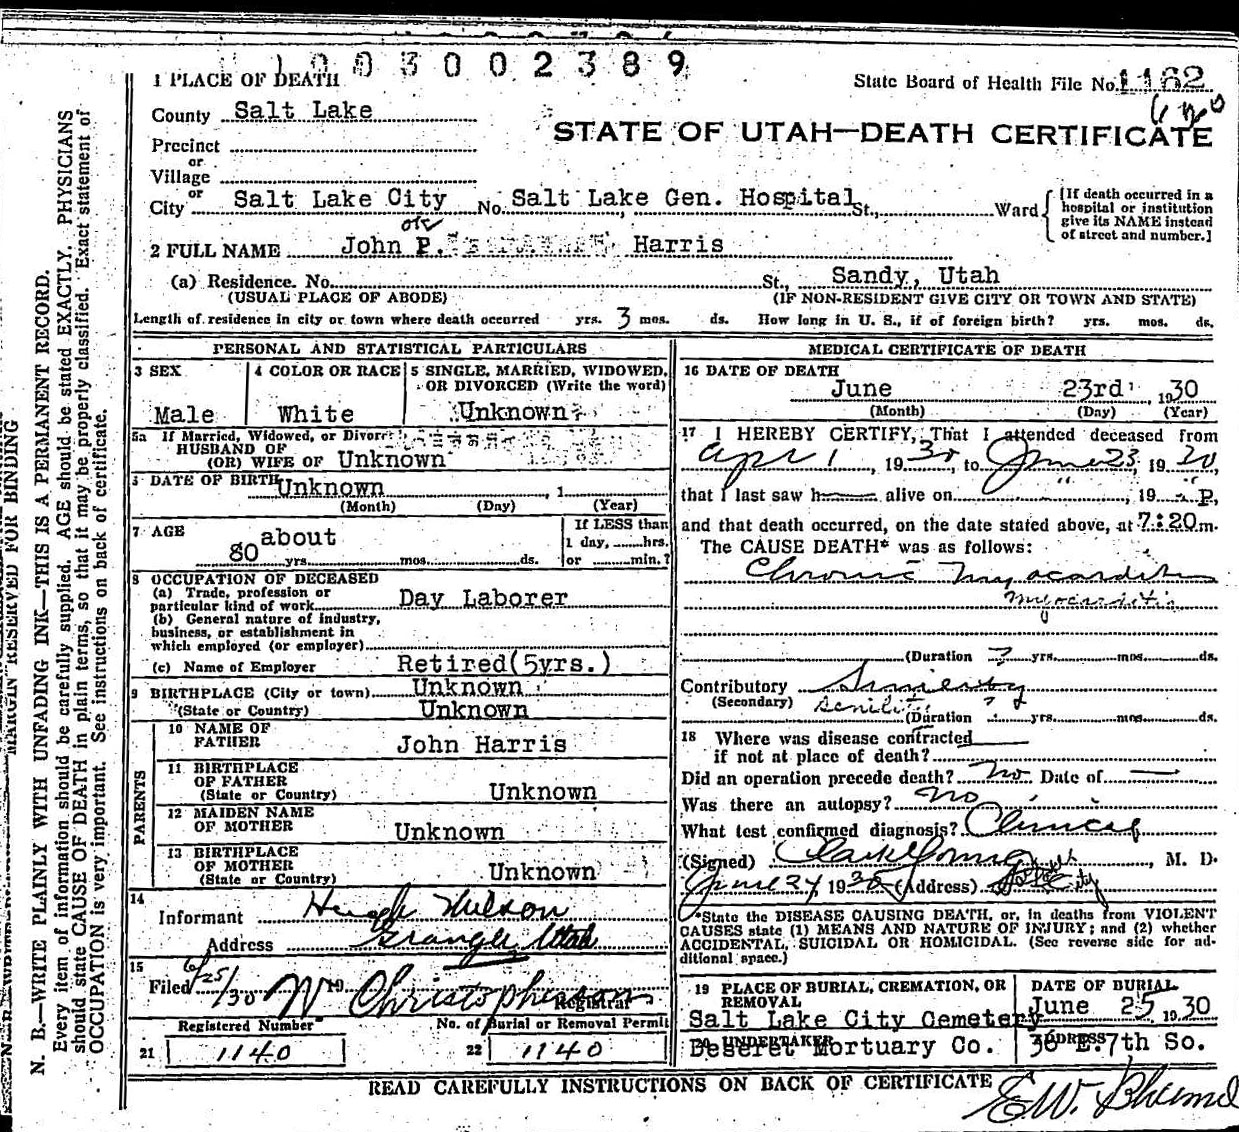 1003002389
1 PLACE OF DEATH
State Board of Health File No. 1162
County Salt Lake
STATE OF UTAH—DEATH CERTIFICATE
Precinct
or
Village
or
City Salt Lake City No. Salt Lake Gen. Hospital St., Ward
[If death occurred in a hospital or institution give its NAME instead of street and number.]
2 FULL NAME John P. Harris
(a) Residence. No. St., Sandy, Utah
(USUAL PLACE OF ABODE) (IF NON-RESIDENT GIVE CITY OR TOWN AND STATE)
Length of residence in city or town where death occurred yrs. 3 mos. ds. How long in U. S., if of foreign birth? yrs. mos. ds.
PERSONAL AND STATISTICAL PARTICULARS
3 SEX
Male
4 COLOR OR RACE
White
5 SINGLE, MARRIED, WIDOWED,
OR DIVORCED (Write the word)
Unknown
5a If Married, Widowed, or Divorc
HUSBAND OF
(OR) WIFE OF Unknown
DATE OF BIRTH Unknown , 1
(Month) (Day) (Year)
7 AGE about
80 yrs. mos. ds.
If LESS than
1 day, hrs.
or min.?
8 OCCUPATION OF DECEASED
(a) Trade, profession or
particular kind of work Day Laborer
(b) General nature of industry,
business, or establishment in
which employed (or employer)
(c) Name of Employer Retired(5yrs.)
9 BIRTHPLACE (City or town) Unknown
(State or Country) Unknown
PARENTS
10 NAME OF
FATHER John Harris
11 BIRTHPLACE
OF FATHER
(State or Country) Unknown
12 MAIDEN NAME
OF MOTHER Unknown
13 BIRTHPLACE
OF MOTHER
(State or Country) Unknown
14
Informant Hugh Nelson
Address Granger Utah
15
Filed 6/25/30 19 W Christopherson
Registrar
Registered Number No. of Burial or Removal Permit
21 1140 22 1140
MEDICAL CERTIFICATE OF DEATH
16 DATE OF DEATH
June 23rd 1930
(Month) (Day) (Year)
17 I HEREBY CERTIFY, That I attended deceased from
Apr 1, 1930, to June 23, 1930,
that I last saw h alive on " , 19 " P,
and that death occurred, on the date stated above, at 7:20 m.
The CAUSE DEATH* was as follows:
Chronic Myocarditis
myocarditis
(Duration ? yrs. mos. ds.
Contributory Senility
(Secondary) Senility
(Duration ? yrs. mos. ds.
18 Where was disease contracted
if not at place of death?
Did an operation precede death? No. Date of —
Was there an autopsy? No
What test confirmed diagnosis? Clinical
(Signed) Clark Young , M. D.
June 24 1930 (Address) City
*State the DISEASE CAUSING DEATH, or, in deaths from VIOLENT
CAUSES state (1) MEANS AND NATURE OF INJURY; and (2) whether
ACCIDENTAL, SUICIDAL OR HOMICIDAL. (See reverse side for ad-
ditional space.)
19 PLACE OF BURIAL, CREMATION, OR
REMOVAL
Salt Lake City Cemetery
DATE OF BURIAL
June 25 1930
20 UNDERTAKER
Deseret Mortuary Co.
ADDRESS
36 E. 7th So.
READ CAREFULLY INSTRUCTIONS ON BACK OF CERTIFICATE
MARGIN RESERVED FOR BINDING
N. B.—WRITE PLAINLY WITH UNFADING INK—THIS IS A PERMANENT RECORD.
Every item of information should be carefully supplied. AGE should be stated EXACTLY. PHYSICIANS
should state CAUSE OF DEATH in plain terms, so that it may be properly classified. Exact statement of
OCCUPATION is very important. See instructions on back of certificate.